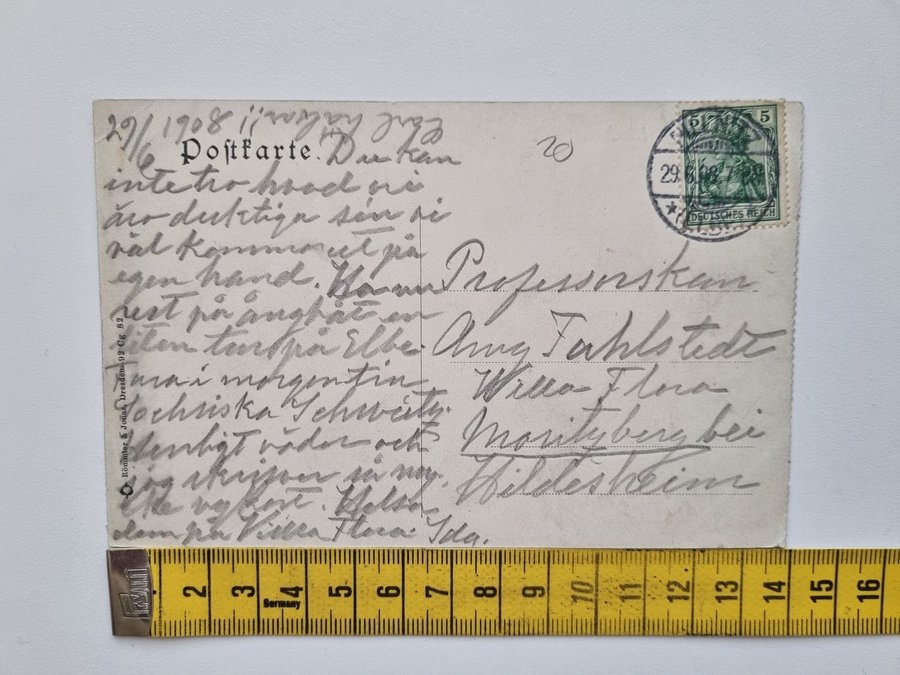 29/6 1908
Carl hälsar!!
Postkarte. Du kan
inte tro hvad vi
äro duktiga sen vi
väl kommo ut på
egen hand. Ha nu
rest på ångbåt en
liten tur på Elbe.
Tura i morgen tin
Sachsiska Schweitz.
väder och
jag skrifver så my-
cke vackert. Helsa
dem på Villa Flora. Ida.
20
5 5
29.6.08. 7-8
DEUTSCHES REICH
Professorskan
Amy Fahlstedt
Willa Flora
Moritzberg bei
Hildesheim
Römmler & Jonas, Dresden. 92 Cg 82
2 3 4 5 6 7 8 9 10 11 12 13 14 15 16
Germany